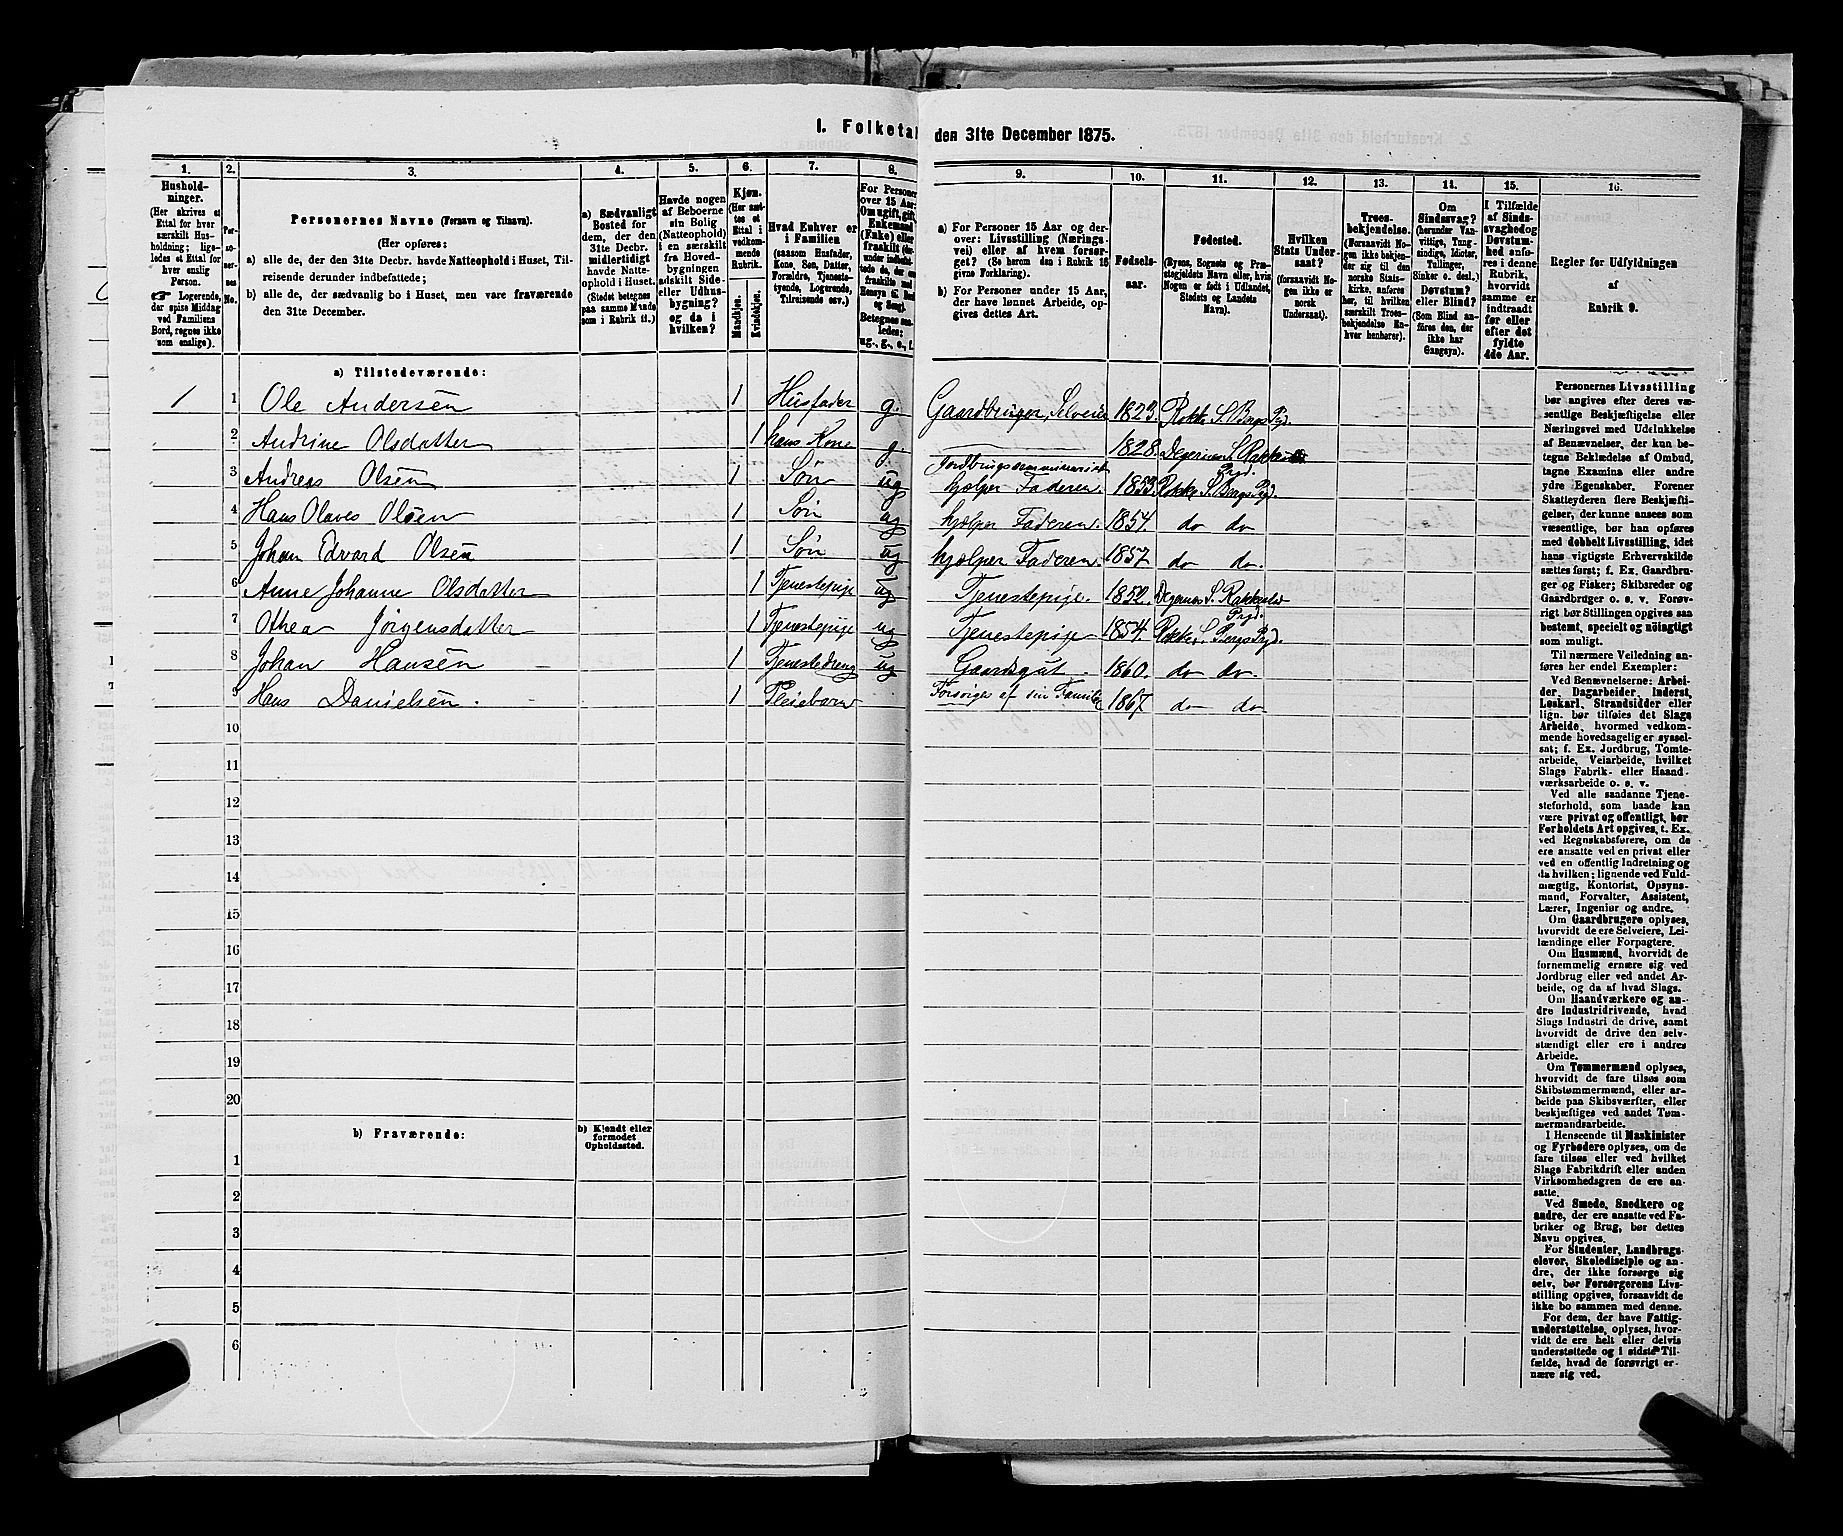 I. Folketal
den 31te December 1875.
1.
2.
3.
4.
5.
6.
7.
8.
9.
10.
11.
12.
13.
14.
15.
16.
Hushold-
ninger.
(Her skrives et
Ettal for hver
særskilt Hus-
holdning; lige-
ledes et Ettal for
hver enslig
Person.
☞ Logerende,
der spise Middag
ved Familiens
Bord, regnes ikke
som enslige).
Per-
so-
ner-
nes
No.
Personernes Navne (Fornavn og Tilnavn).
(Her opføres:
a) alle de, der den 31te Decbr. havde Natteophold i Huset, Til-
reisende derunder indbefattede;
b) alle de, der sædvanlig bo i Huset, men vare fraværende
den 31te December.
a) Sædvanligt
Bosted for
dem, der den
31te Decbr.
midlertidigt
havde Natte-
ophold i Huset.
(Stedet betegnes
paa samme Maade
som i Rubrik 11.)
Havde nogen
af Beboerne
sin Bolig
(Natteophold)
i en særskilt
fra Hoved-
bygningen
adskilt Side-
eller Udhus-
bygning?
og da i
hvilken?
Kjøn.
(Her sæt-
tes et
Ettal i
vedkom-
mende
Rubrik.
Mandkjøn.
Kvindekjøn.
Hvad Enhver er
i Familien
(saasom Husfader,
Kone, Søn, Datter,
Forældre, Tjeneste-
tyende, Logerende,
Tilreisende osv.)
For Personer
over 15 Aar:
Om ugift, gift,
Enkemand
(Enke) eller
fraskilt
Betegnes saa-
ledes:
ug., g., e., f.
a) For Personer 15 Aar og der-
over: Livsstilling (Nærings-
vei) eller af hvem forsør-
get? (Se herom den i Rubrik 16
givne Forklaring).
b) For Personer under 15 Aar,
der have lønnet Arbeide, op-
gives dettes Art.
Fødsels-
aar.
Fødested.
(Byens, Sognets og Præ-
stegjeldets Navn eller, hvis
Nogen er født i Udlandet,
Stedets og Landets
Navn).
Hvilken
Stats Under-
saat?
(forsaavidt No-
gen ikke er
norsk
Undersaat).
Troes-
bekjendelse.
(Forsaavidt No-
gen ikke bekjen-
der sig til den
norske Stats-
kirke, anføres
her, til hvilken
særskilt Troes-
bekjendelse En-
hver henhører).
Om
Sindssvag?
(herunder Van-
vittige, Tung-
sindige, Idioter,
Tullinger,
Sinker o. desl.)
Døvstum?
eller Blind?
(Som Blind an-
føres den, der
ikke har
Gangsyn).
I Tilfælde
af Sinds-
svaghed og
Døvstum-
hed anfø-
res i denne
Rubrik,
hvorvidt
samme er
indtraadt
før eller
efter det
fyldte
4de Aar.
Regler for Udfyldningen
af
Rubrik 9.
a) Tilstedeværende:
1 1 Ole Andersen 1 Husfader g. Gaardbruger, Selveier 1823 Rokke S. Bergs Pgd.
2 Andrine Olsdatter 1 hans Kone g. 1828 Degernes S. Rakkestad Pgd.
3 Andreas Olsen 1 Søn ug hjælper Faderen. 1853 Rokke S. Bergs Pgd.
4 Hans Olaves Olsen 1 Søn ug hjælper Faderen. 1854. do do
5 Johan Edvard Olsen 1 Søn ug hjælper Faderen. 1857. do do.
6 Anne Johanne Olsdatter 1 Tjenestepige ug Tjenestepige. 1852. Degernes S. Rakkestad Pgd.
7 Othea Jørgensdatter 1 Tjenestepige ug Tjenestepige 1854. Rokke S. Bergs Pgd.
8 Johan Hansen 1 Tjenestedreng ug Gaardsgut. 1860. do do.
9 Hans Danielsen. 1 Pleiebarn Forsørges af sin Familie 1867. do do
10
11
12
13
14
15
16
17
18
19
20
b) Fraværende:
b) Kjendt eller
formodet
Opholdssted.
1
2
3
4
5
6
Personernes Livsstilling
bør angives efter deres væ-
sentlige Beskjæftigelse eller
Næringsvei med Udelukkelse
af Benævnelser, der kun be-
tegne Beklædelse af Ombud,
tagne Examina eller andre
ydre Egenskaber. Forener
Skatteyderen flere Beskjæfti-
gelser, der kunne ansees som
væsentlige, bør han opføres
med dobbelt Livsstilling, idet
hans vigtigste Erhvervskilde
sættes først; f. Ex. Gaardbru-
ger og Fisker; Skibsreder og
Gaardbruger o. s. v. Forøv-
rigt bør Stillingen opgives saa
bestemt, specielt og nøiagtigt
som muligt.
Til nærmere Veiledning an-
føres her endel Exempler:
Ved Benævnelserne: Arbei-
der, Dagarbeider, Inderst,
Løskarl, Strandsidder eller
lign. bør tilføies det Slags
Arbeide, hvormed vedkom-
mende hovedsagelig er syssel-
sat; f. Ex. Jordbrug, Tomte-
arbeide, Veiarbeide, hvilket
Slags Fabrik- eller Haand-
værksarbeide o. s. v.
Ved alle saadanne Tjene-
steforhold, som baade kan
være privat og offentligt, bør
Forholdets Art opgives, t. Ex.
ved Regnskabsførere, om de
ere ansatte ved en privat eller
ved en offentlig Indretning og
da hvilken; lignende ved Fuld-
mægtig, Kontorist, Opsyns-
mand, Forvalter, Assistent,
Lærer, Ingeniør og andre.
Om Gaardbrugere oplyses,
hvorvidt de ere Selveiere, Lei-
lændinge eller Forpagtere.
Om Husmænd, hvorvidt de
fornemmelig ernære sig ved
Jordbrug eller ved andet Ar-
beide, og da af hvad Slags.
Om Haandværkere og an-
dre Industridrivende, hvad
Slags Industri de drive, samt
hvorvidt de drive den selv-
stændigt eller ere i andres
Arbeide.
Om Tømmermænd oplyses,
hvorvidt de fare tilsøs som
Skibstømmermænd, eller ar-
beide paa Skibsværfter, eller
beskjæftiges ved andet Tøm-
mermandsarbeide.
I Henseende til Maskinister
og Fyrbødere oplyses, om de
fare tilsøs eller ved hvilket
Slags Fabrikdrift eller anden
Virksomhedsgren de ere an-
satte.
Ved Smede, Snedkere og
andre, der ere ansatte ved Fa-
briker og Brug, bør dettes
Navn opgives.
For Studenter, Landbrugs-
elever, Skoledisciple og an-
dre, der ikke forsørge sig
selv, bør Forsørgerens Livs-
stilling opgives, forsaavidt de
ikke bo sammen med denne.
For dem, der have Fattig-
understøttelse, oplyses, hvor-
vidt de ere helt eller delvis
understøttede og i sidste Til-
fælde, hvad de forøvrigt er-
nære sig ved.